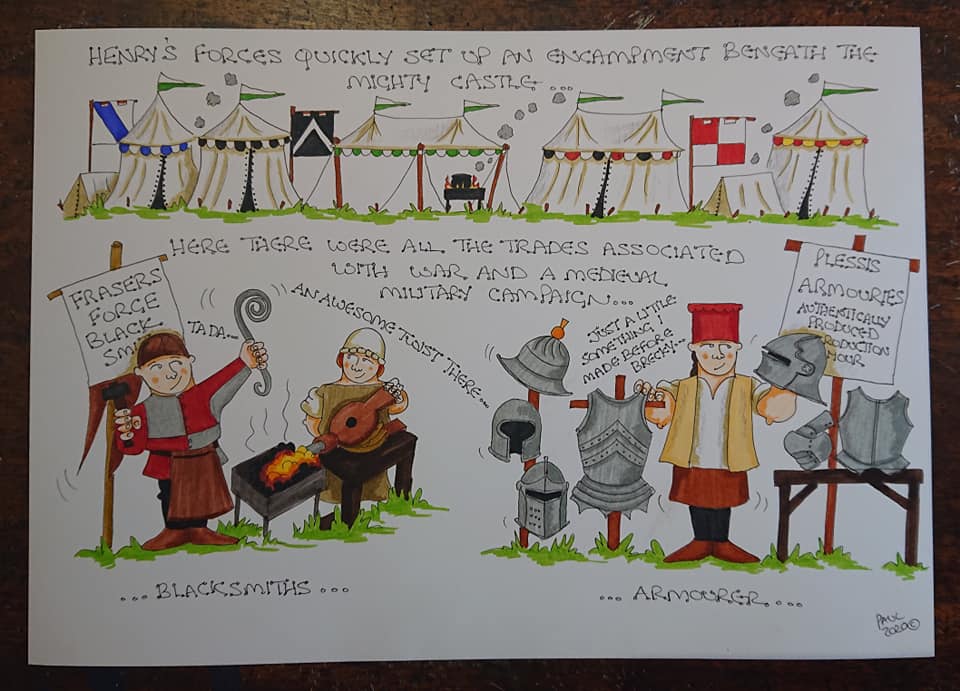 HENRY'S FORCES QUICKLY SET UP AN ENCAMPMENT BENEATH THE
MIGHTY CASTLE ...
HERE THERE WERE ALL THE TRADES ASSOCIATED
WITH WAR AND A MEDIEVAL
MILITARY CAMPAIGN...
FRASERS
FORGE
BLACK
TADA...
AN AWESOME TWIST THERE...
JUST A LITTLE
SOMETHING I
MADE BEFORE
BRECKY...
PLESSIS
ARMOURIES
AUTHENTICALLY
PRODUCED
PRODUCTION
...BLACKSMITHS...
...ARMOURER....
PAUL
2020©